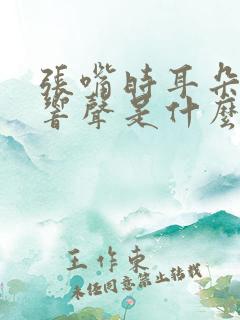 張嘴時耳朵
響聲是什麼
王作東
未經同意禁止轉載